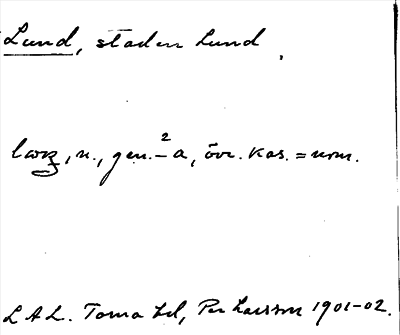 Lund, staden Lund,
n., gen. -²a, övr. kas. = nom.
L A L. Torna hd, Per Larsson 1901-02.